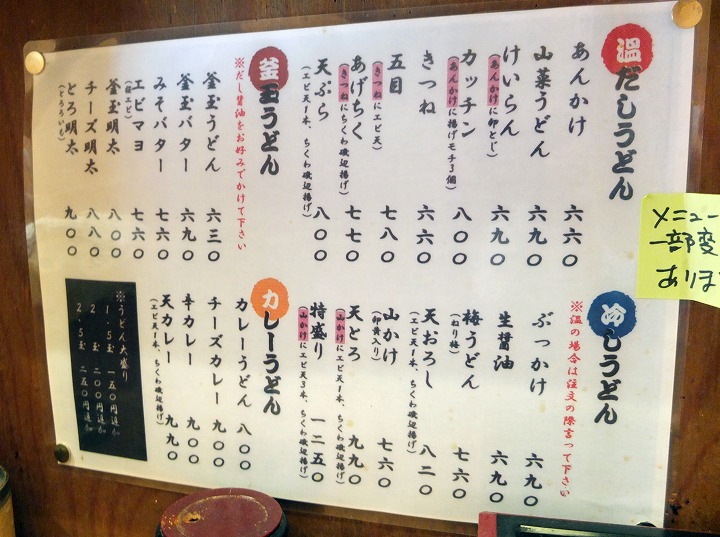 温だしうどん
あんかけ 六六〇
山菜うどん 六九〇
けいらん 六九〇
(あんかけに卵とじ)
カッチン 八〇〇
(あんかけに揚げモチ3個)
きつね 六六〇
五目 七八〇
(きつねにエビ天)
あげちく 七七〇
(きつねにちくわ磯辺揚げ)
天ぷら 八〇〇
(エビ天1本、ちくわ磯辺揚げ)
釜玉うどん
※だし醤油をお好みでかけて下さい
釜玉うどん 六三〇
釜玉バター 六九〇
みそバター 七六〇
エビマヨ 七六〇
釜玉明太 八〇〇
チーズ明太 八八〇
とろ明太 九〇〇
(とろろいも)
冷しうどん
※温の場合は注文の際言って下さい
ぶっかけ 六九〇
生醤油 六九〇
梅うどん 七六〇
(ねり梅)
天おろし 八二〇
(エビ天1本、ちくわ磯辺揚げ)
山かけ 七六〇
(卵黄入り)
天とろ 九九〇
(山かけにエビ天1本、ちくわ磯辺揚げ)
特盛り 一二五〇
(山かけにエビ天3本、ちくわ磯辺揚げ)
カレーうどん
カレーうどん 八〇〇
チーズカレー 九〇〇
辛カレー 九〇〇
天カレー 九九〇
(エビ天1本、ちくわ磯辺揚げ)
※うどん大盛り
1.5玉 一五〇円追加
2玉 二〇〇円追加
2.5玉 二五〇円追加
メニュー
一部変
あります